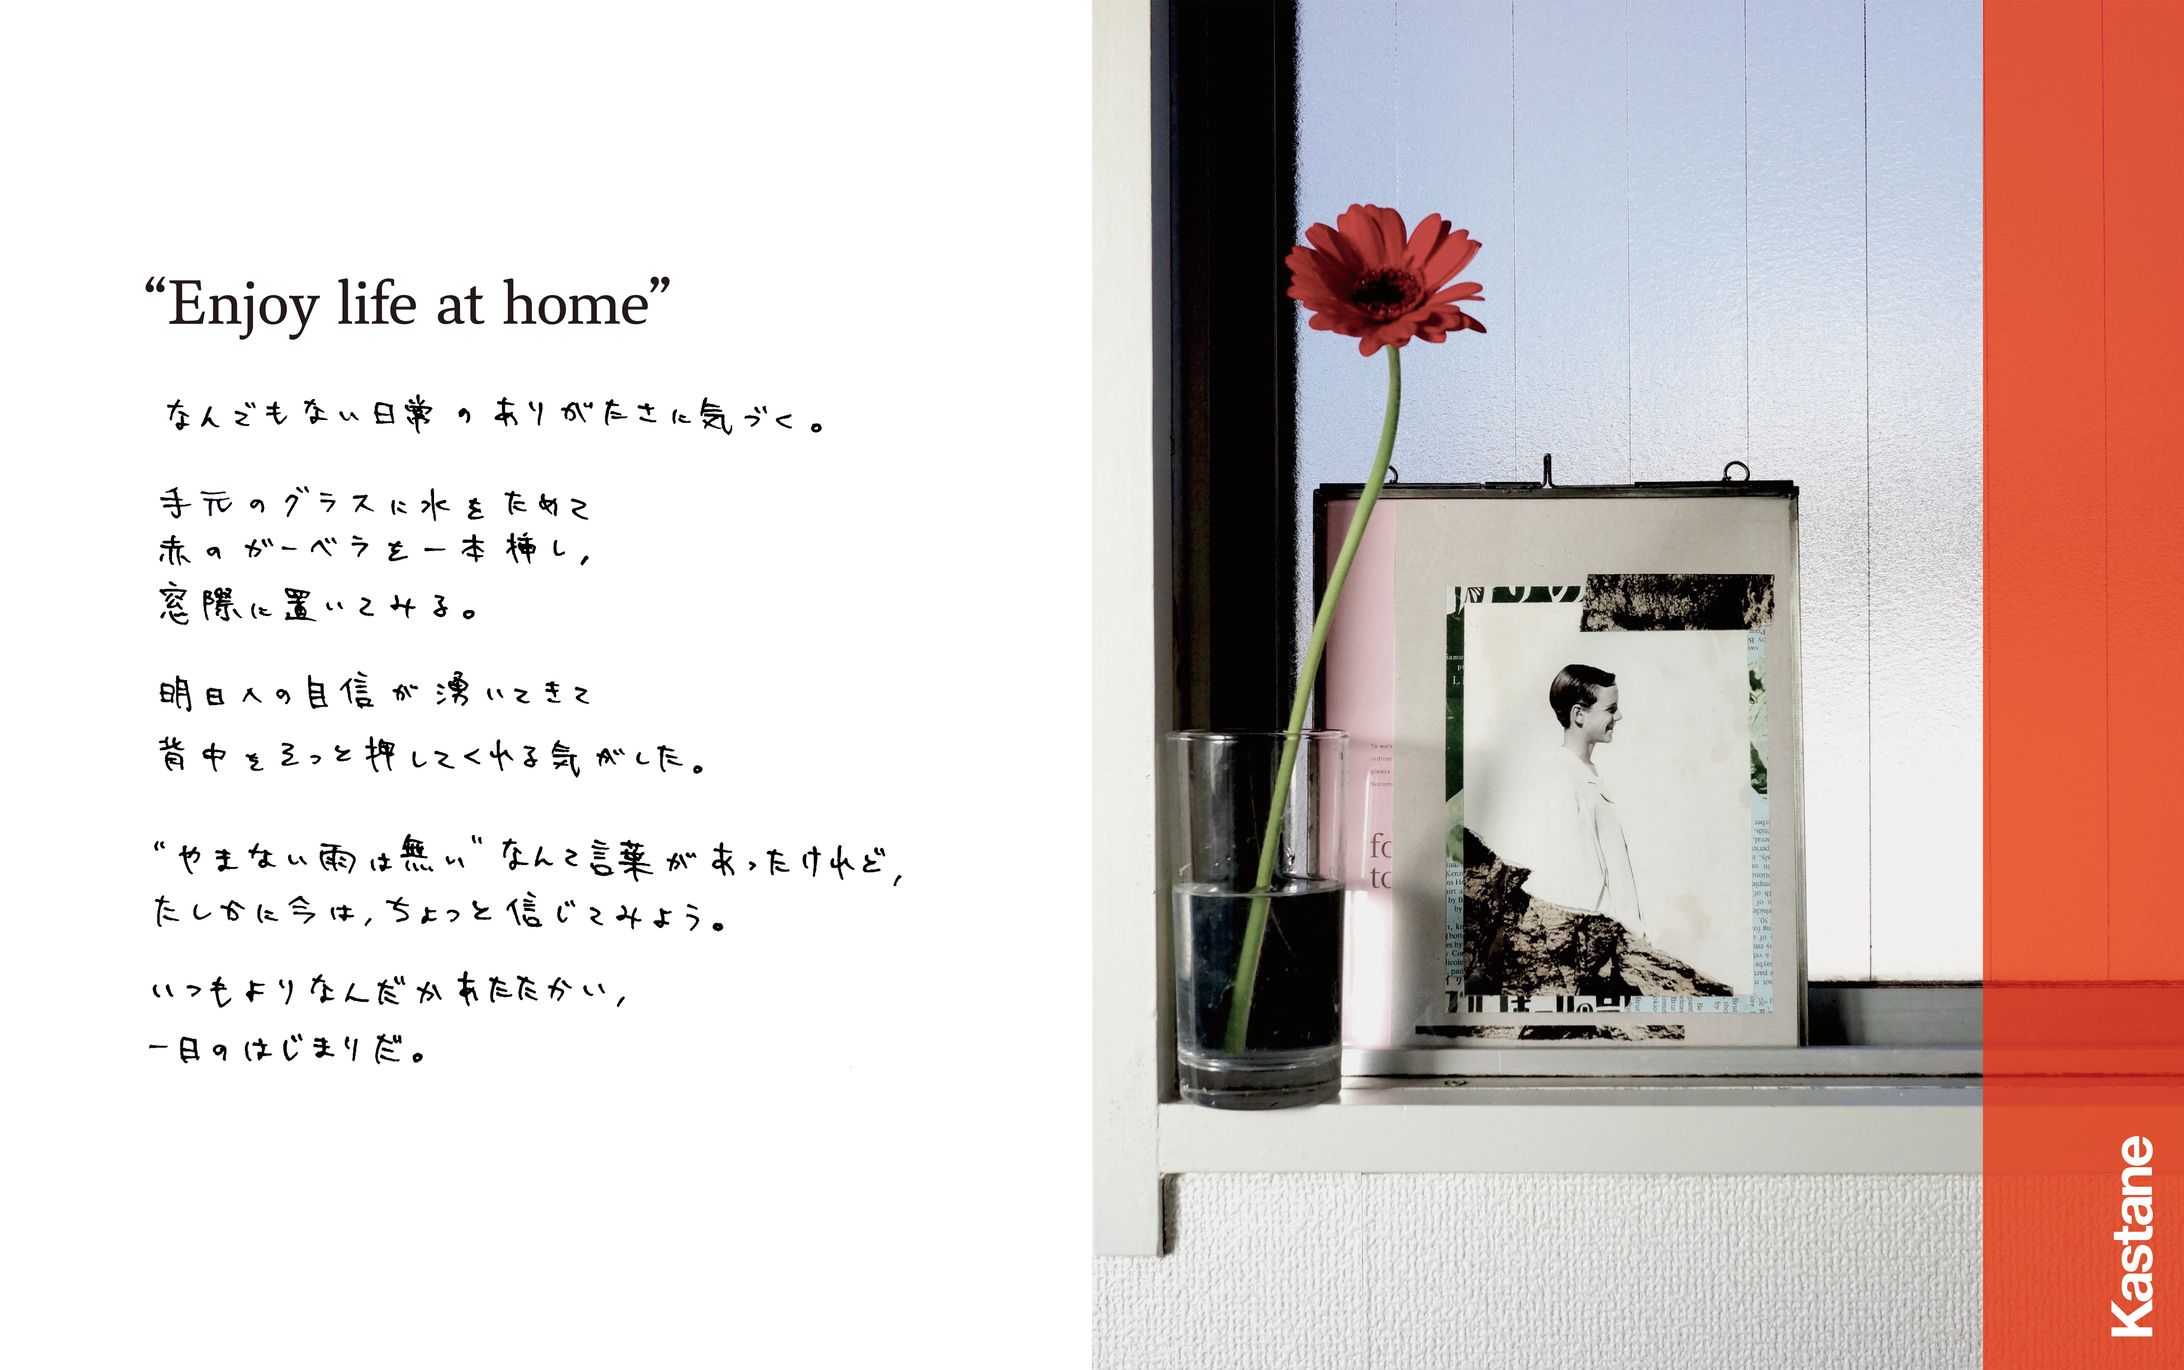 “Enjoy life at home”
なんでもない日常のありがたさに気づく。
手元のグラスに水をためて
赤のガーベラを一本挿し,
窓際に置いてみる。
明日への自信が湧いてきて
背中をそっと押してくれる気がした。
“やまない雨は無い”なんて言葉があったけれど,
たしかに今は,ちょっと信じてみよう。
いつもよりなんだかあたたかい,
一日のはじまりだ。
Kastane